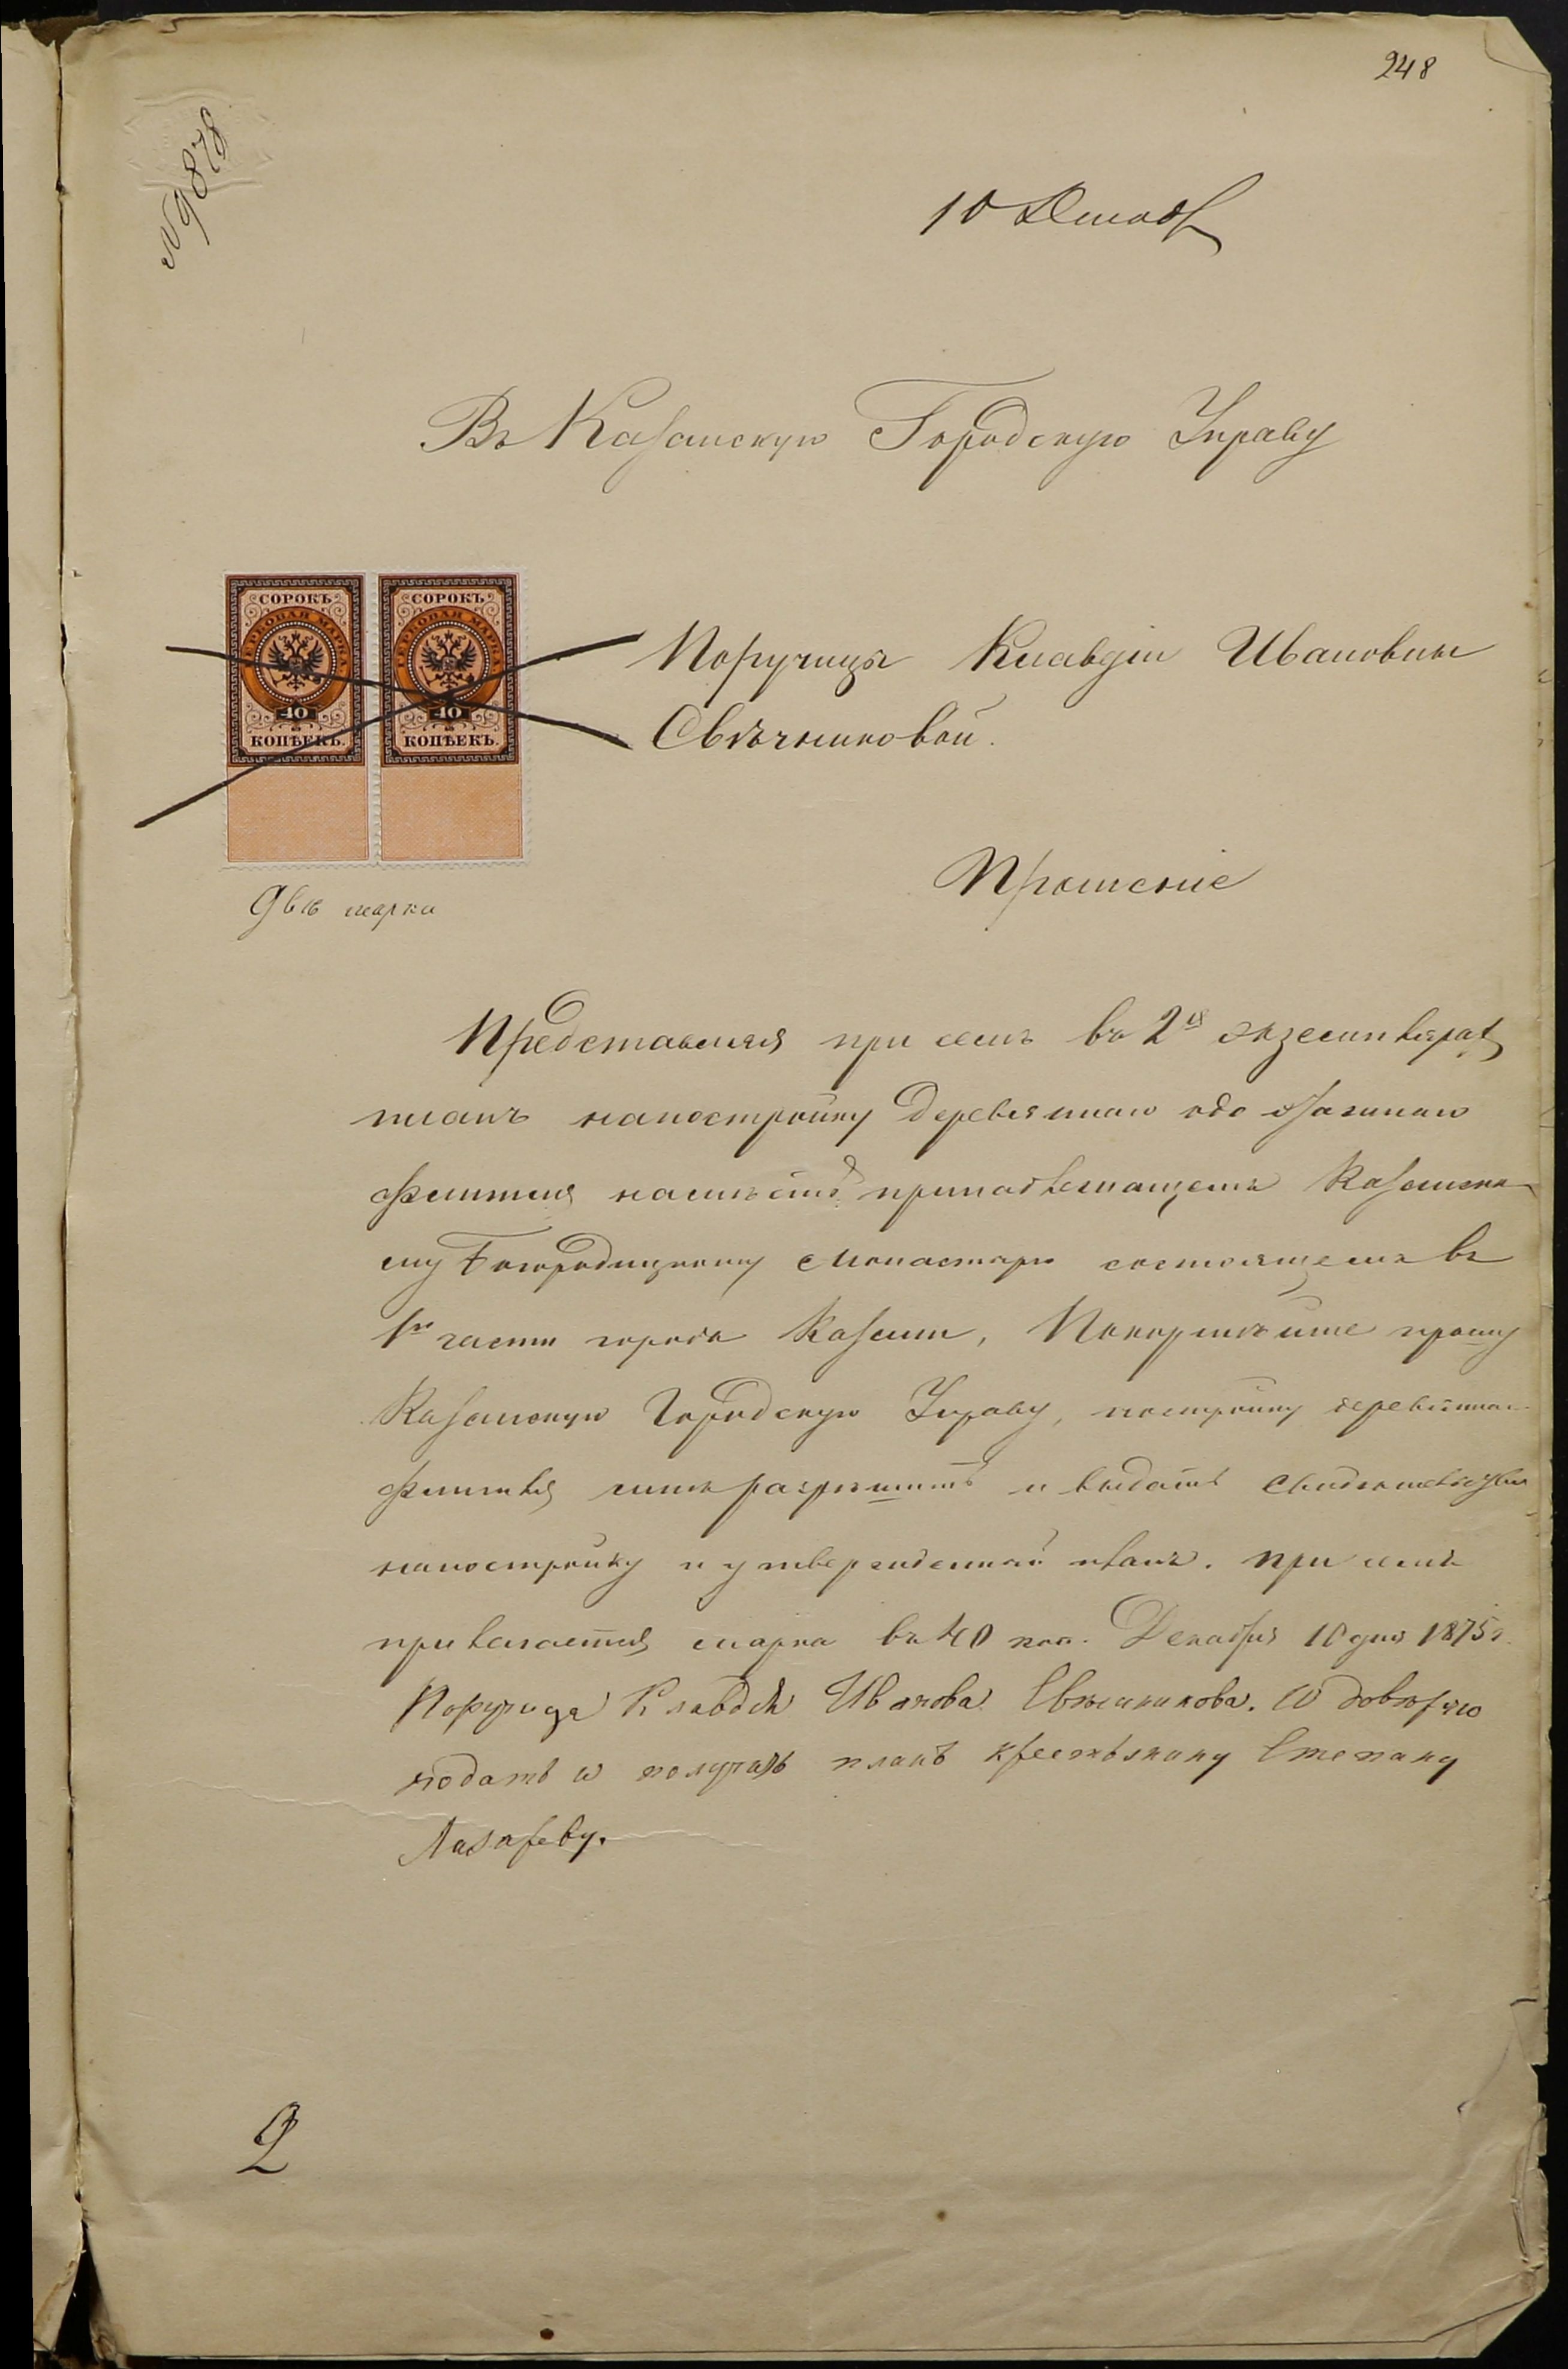 248
№ 9878
10 Декабр
Въ Казанскую Городскую Управу
СОРОКЪ СОРОКЪ
ГЕРБОВАЯ МАРКА ГЕРБОВАЯ МАРКА
40 40
КОПѢЕКЪ. КОПѢЕКЪ.
Двѣ марки
Поручицы Клавдіи Ивановны
Свѣчниковой.
Прошеніе
Представляя при семъ въ 2хъ экземплярах
планъ напостройку деревяннаго
флигеля намѣстѣ принадлежащемъ Казанско
му Богородицкому Монастырю состоящемъ въ
1й части города Казани, Покорнѣйше прошу
Казанскую Городскую Управу, постройку деревяннаго
флигеля мнѣ разрѣшить и выдать
напостройку и утвержденный планъ. при семъ
прилагается марка въ 40 коп. Декабря 10 дня 1875 г.
Поручица Клавдія Иванова Свѣчникова. И довѣряю
подать и получать планъ крестьянину Степану
Лазареву.
2